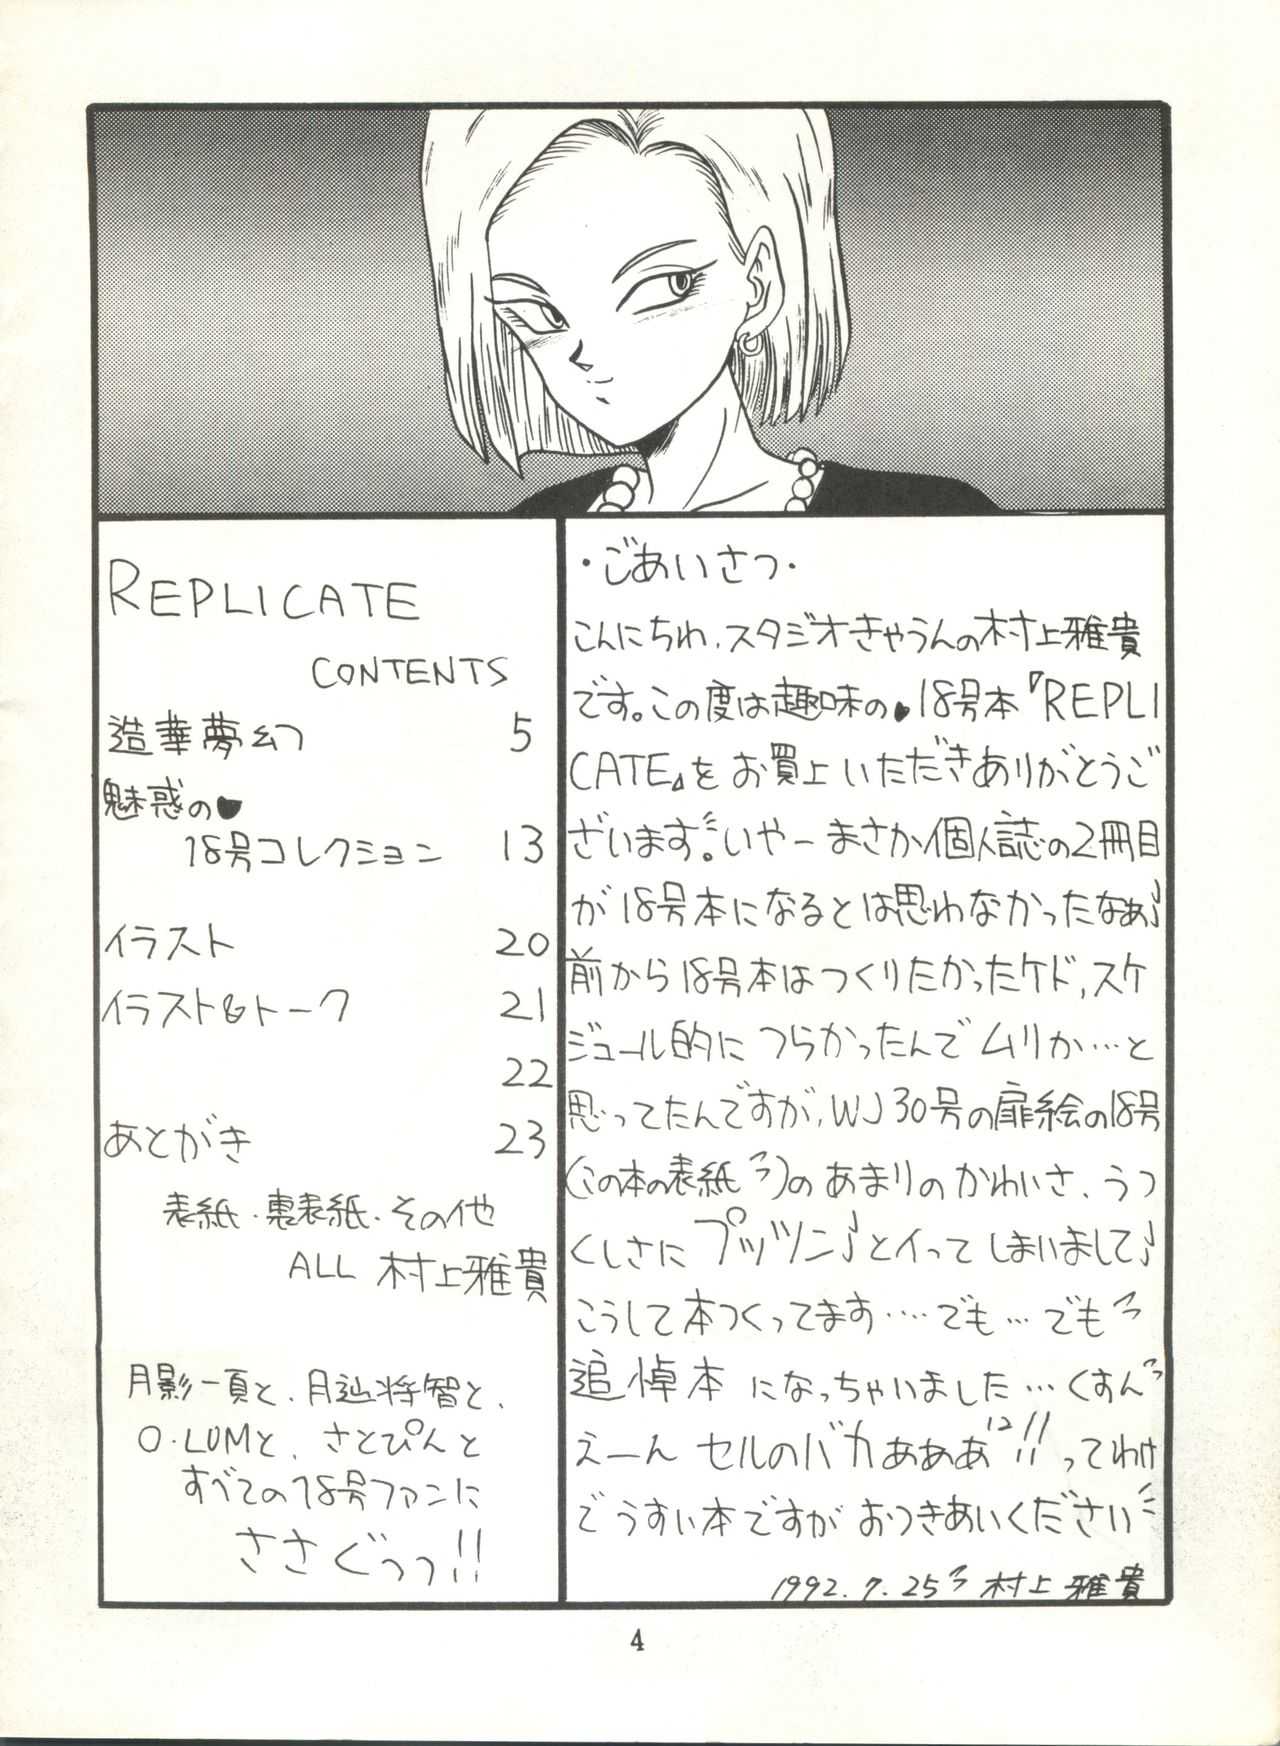 REPLICATE
CONTENTS
造華夢幻 5
魅惑の♥
18号コレクション 13
イラスト 20
イラスト&トーク 21
22
あとがき 23
表紙・裏表紙・その他
ALL 村上雅貴
月影一頁と、月辿将智と、
O・LUMと、さとぴんと
すべての18号ファンに
ささぐっっ!!
・ごあいさつ・
こんにちわ、スタジオきゃうんの村上雅貴
です。この度は趣味の♥18号本『REPLI
CATE』をお買上いただきありがとうご
ざいます。いやーまさか個人誌の2冊目
が18号本になるとは思わなかったなぁ♪
前から18号本はつくりたかったケド,スケ
ジュール的につらかったんでムリか…と
思ってたんですが,WJ30号の扉絵の18号
(この本の表紙ラ)のあまりのかわいさ、うつ
くしさにプッツン♪とイってしまいまして♪
こうして本つくってます‥‥でも…でもラ
追悼本になっちゃいました…くすんラ
えーんセルのバカぁぁぁ!!ってわけ
でうすい本ですがおつきあいください
1992.7.25 村上雅貴
4